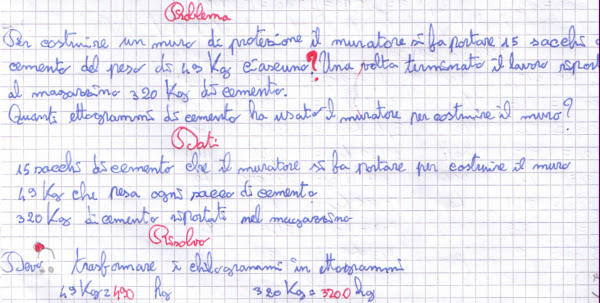 Problema
Per costruire un muro di protezione il muratore si fa portare 15 sacchi di
cemento del peso di 49 Kg ciascuno? Una volta terminato il lavoro riporta
al magazzino 320 Kg di cemento.
Quanti ettogrammi di cemento ha usato il muratore per costruire il muro?
Dati
15 sacchi di cemento che il muratore si fa portare per costruire il muro
49 Kg che pesa ogni sacco di cemento
320 Kg di cemento riportati nel magazzino
Risolvo
Devo trasformare i chilogrammi in ettogrammi
49 Kg = 490 hg 320 Kg = 3200 hg